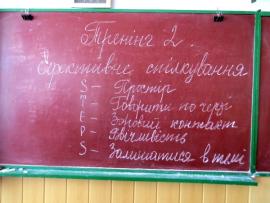 Тренінг 2.
Ефективне спілкування
S – Простір
T – Говорити по черзі
E – Зоровий контакт
P – Ввічливість
S – Залишатися в темі